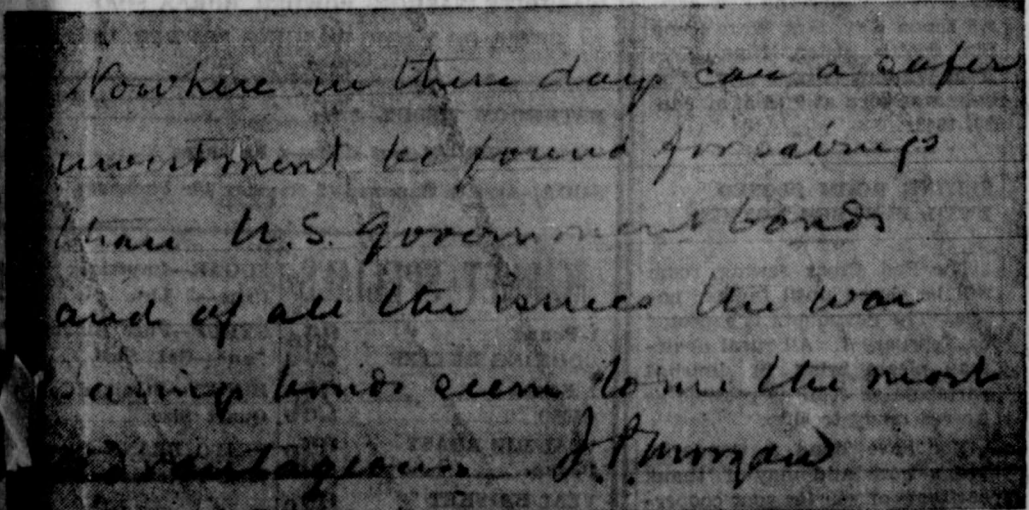 Nowhere in these days can a safer
investment be found for savings
than U.S. Government bonds
and of all the issues the war
savings bonds seem to me the most
advantageous. J. P. Morgan